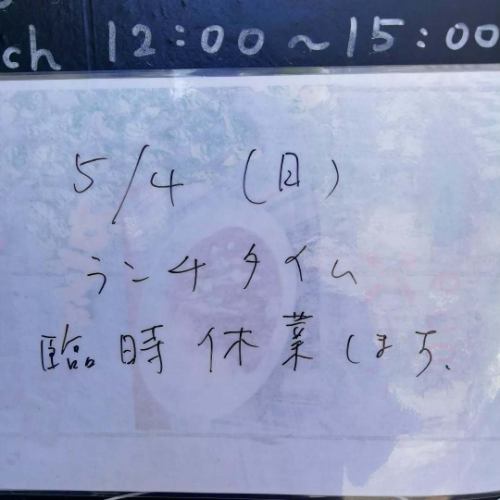 ch 12:00~15:00
5/4 (日)
ランチタイム
臨時休業します、